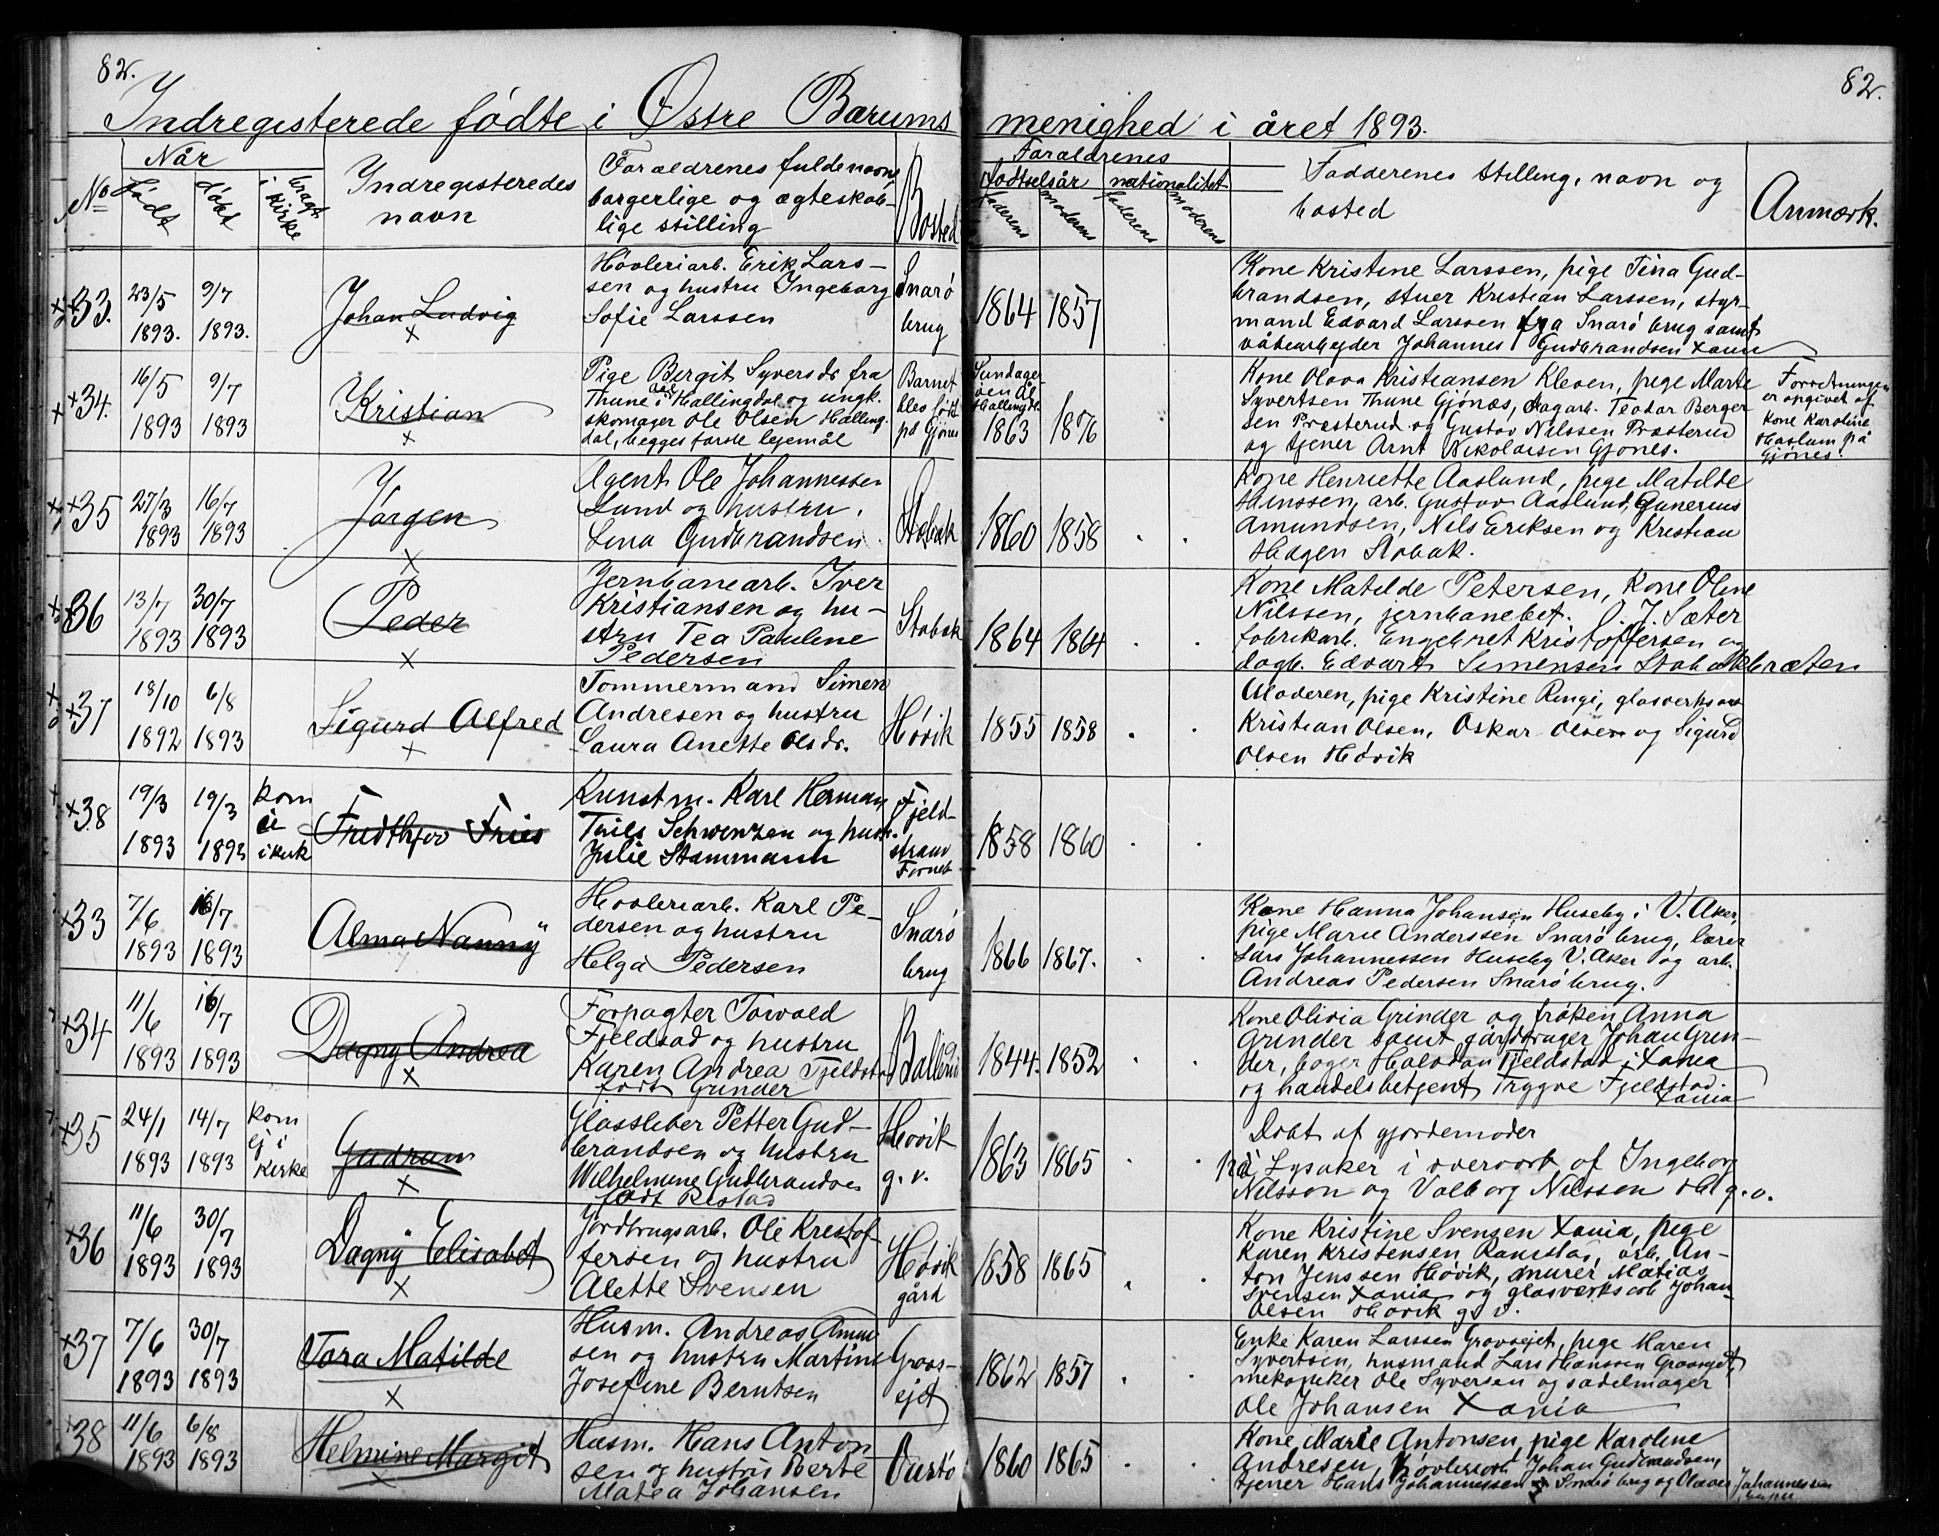 82.
82.
Indregisterede fødte i Østre Bærums menighed i året 1893.
No
Når
født
døbt
bragt i kirke
Indregisteredes navn
Foræeldrenes fulde navn, borgerlige og ægteskablige stilling
Bosted
Forældrenes
fødselsår
faderens
moderens
nationalitet
faderens
moderens
Fadderenes stilling, navn og bosted
Anmærk.
33.
23/5 1893.
9/7 1893.
Johan Ludvig
Høvleriarb. Erik Lars-
sen og hustru Ingeborg
Sofie Larssen
Snarø
brug
1864
1857
Kone Kristine Larssen, pige Tina Gud-
brandsen, stuer Kristian Larssen, styr-
mand Edvard Larssen fra Snarø brug samt
Johannes Gudbrandsen Xania
34.
16/5 1893
9/7 1893
Kristian
Pige Bergit Syversdr fra
Thune i Aal Hallingdal og ungk.
skomager Ole Olsen Halling-
dal, begges første lejemål
Barnet
blev født
på Gjønes
Hallingdl.
1863
1876
Kone Olava Kristiansen Kleven, pige Marte
Syvertsen Thune Gjønæs, dagarb. Teodar Berger-
sen Præsterud og Gustav Nilssen Præsterud
og tjener Arnt Nikolaisen Gjønes.
Forretningen
er opgivet af
Kone Karoline
Haslum på
Gjønes.
35
27/3 1893
16/7 1893
Jørgen
Agent Ole Johannessen
Lund og hustru
Lina Gudbrandsen
Stabæk
1860
1858
Kone Henriette Aaslund, pige Matilde
Hanssen, arb. Gustav Aaslund, Gunerius
Amundsen, Nils Eriksen og Kristian
Hagen Stabæk.
36
13/7 1893
30/7 1893
Peder
Jernbanearb. Iver
Kristiansen og hu-
stru Tea Pauline
Pedersen
Stabæk
1864
1864
Kone Matilde Petersen, Kone Oline
Nilssen, jernbanebet. O. J. Sæter
fabrikarb. Engebret Kristoffersen og
dagb. Edvart Simensen Stabækbråten
37
18/10 1892
6/8 1893
Sigurd Alfred
Tømmermand Simen
Andresen og hustru
Laura Anette Olsdr.
Høvik
1855
1858
Moderen, pige Kristine Ringi, glasverksarb
Kristian Olsen, Oskar Olsen og Sigurd
Olsen Høvik
38
19/3 1893
19/3 1893
kom
ei
i kirk
Fridthjov Fries
Kunstm. Karl Herman
Schwenzen og hust.
Julie Stammann
Fjeld-
strand
Forneb
1858
1860
33
7/6 1893
16/7 1893
Alma Nanny
Høvleriarb. Karl Pe-
dersen og hustru
Helga Pedersen
Snarø
brug
1866
1867.
Kone Hanna Johansen Huseby i V. Aker,
pige Marie Anderssen Snarø brug, lærer
Lars Johannessen Huseby V. Aker og arb.
Andreas Pedersen Snarø brug.
34
11/6 1893
16/7 1893
Dagny Andrea
Forpagter Torvald
Fjeldstad og hustru
Karen Andrea Fjeldsta
født Grinder
Ballerud
1844.
1852
Kone Olivia Grinder og frøken Anna
Grinder samt gårdbruger Johan Grin-
der, bager Halvdan Fjeldstad i Xania
og handelsbetjent Trygve Fjeldstad.
Xania
35
24/1 1893
14/7 1893
kom
ej i
kirke
Gudrun
Glassliber Petter Gud-
brandsen og hustru
Wilhelmine Gudbrandsen
født Ristad
Høvik
g. v.
1863
1865
Døbt af gjordemoder
på Lysaker i overvær af Ingeborg
Nilsson og Valborg Nilssen g. v.
36
11/6 1893
30/7 1893
Dagny Elisabet
Jordbrugsarb. Ole Kristof-
fersen og hustru
Alette Svensen
Høvik
gård
1858
1865
Kone Kristine Svensen Xania, pige
Karen Kristensen Ramstad, arb. An-
ton Jenssen Høvik, murer Matias
Svensen Xania og glasverksarb Johan
Olsen Høvik g. v.
37
7/6 1893
30/7 1893
Tora Matilde
Husm. Andreas
sen og hustru Martine
Josefine Berntsen
Grøvs-
ejet
1862
1857
Enke Karen Larssen Grøvsejet, pige Maren
Syvertsen, husmand Lars Hanssen Grøvsejet,
Ole Syversen og sadelmager
Ole Johansen Xania
38
11/6 1893
6/8 1893
Helmine Margit
Husm. Hans Anton-
sen og hustru Berte
Matea Johansen
Ourtø
1860
1865
Kone Marie Antonsen, pige Karoline
Andresen, høvleriarb Johan Gudbrandsen,
tjener Hans Johannessen Snarø brug og Olaves Johannessen